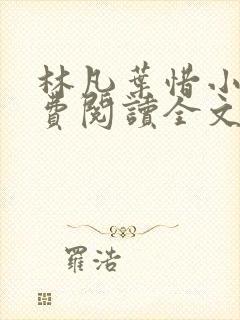 林凡葉惜小
費閱讀全文
羅浩